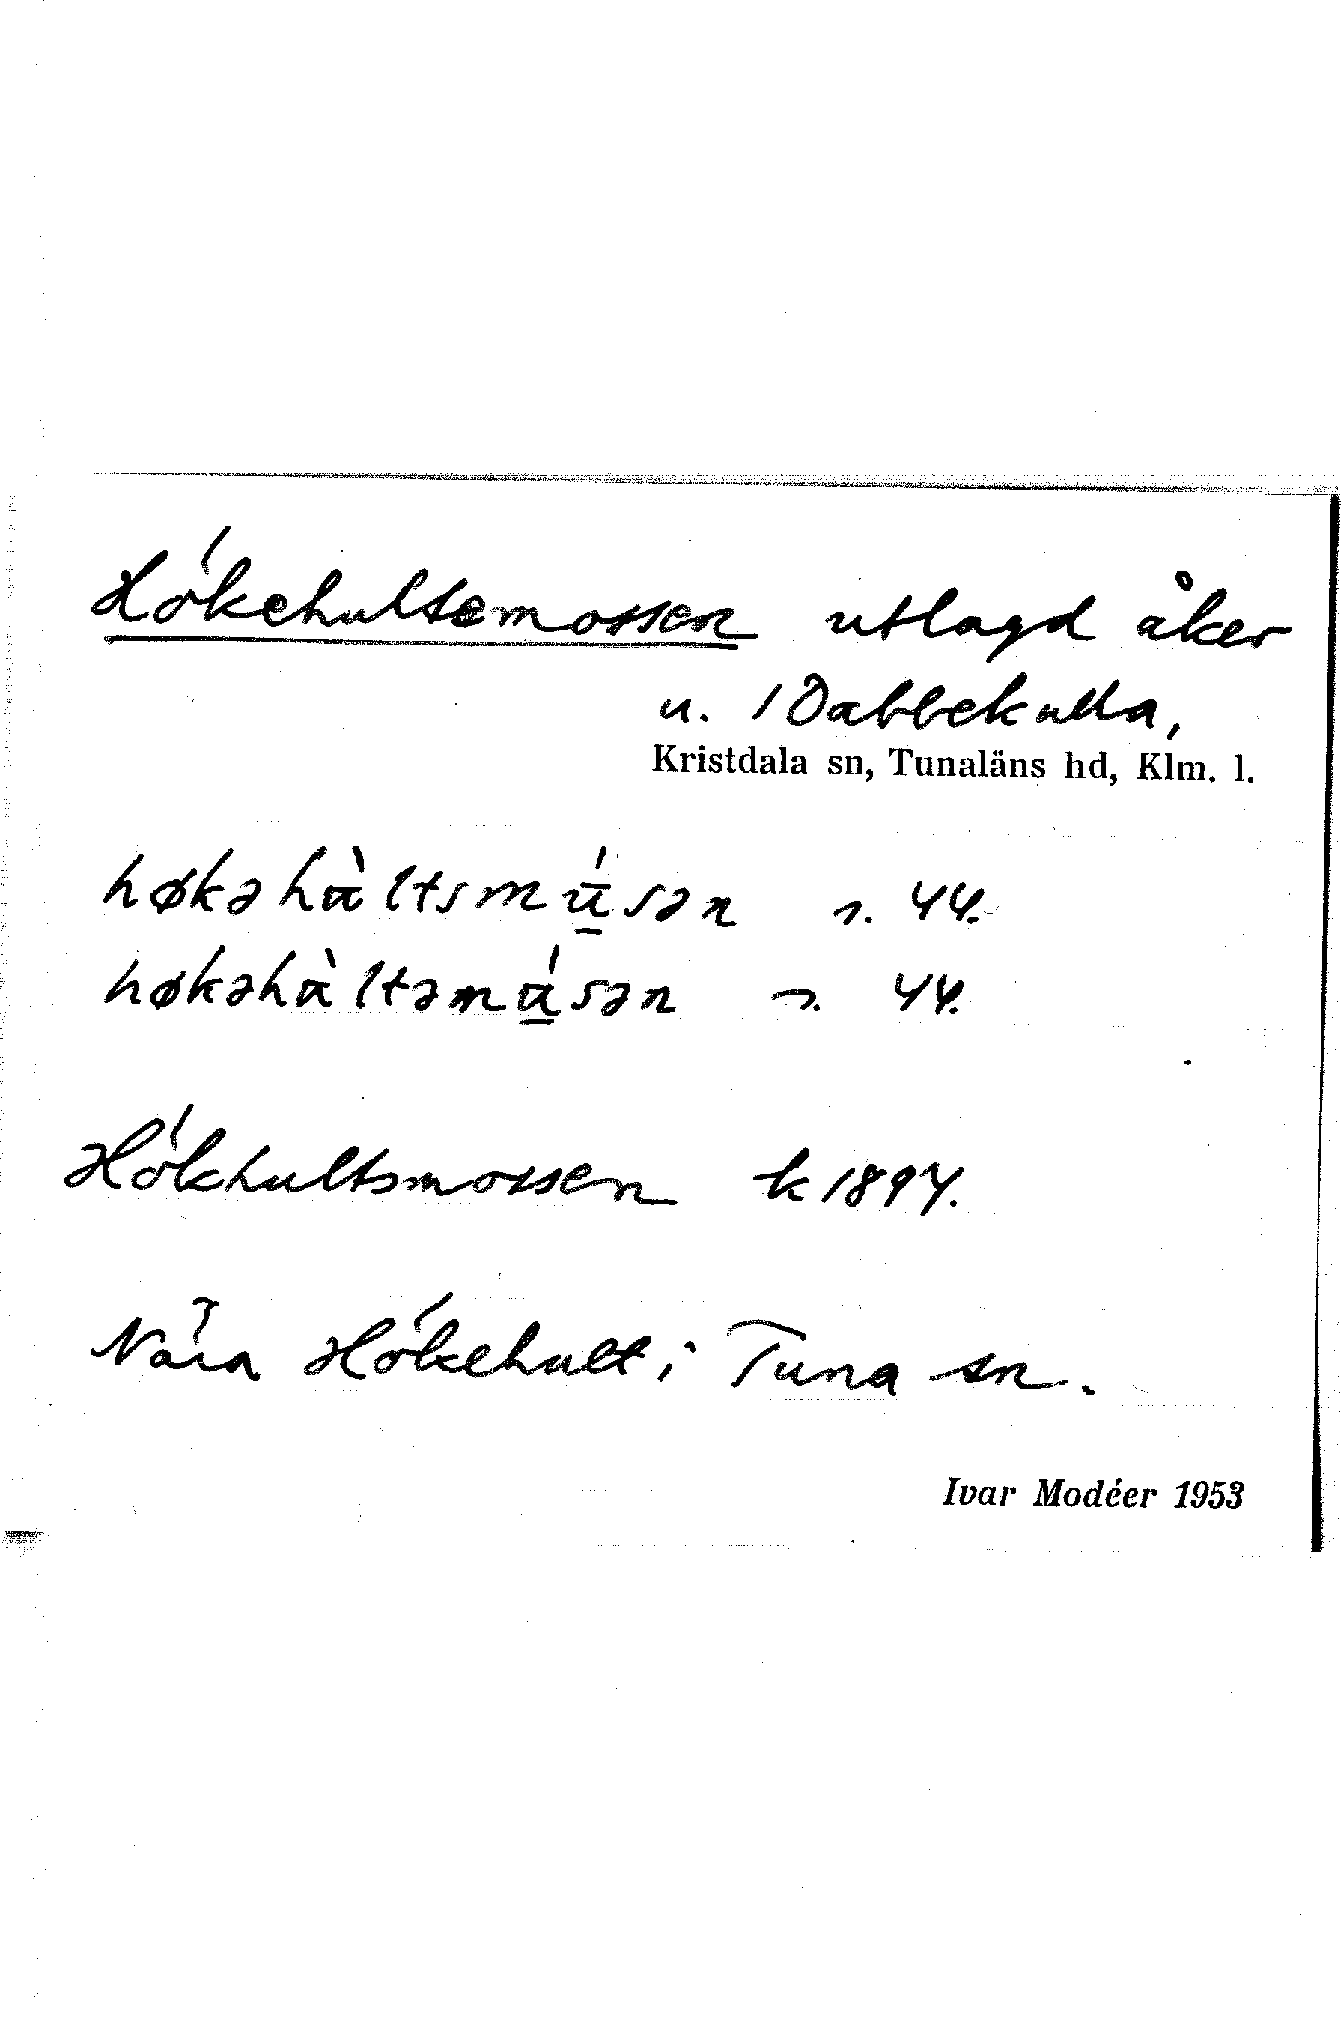 Hökehultemossen utlagd åker
u. 1 Dabbekulla,
Kristdala sn, Tunaläns hd, Klm. l.
høkəhàltsmásən s. 44.
høkəhàltəmásən s. 44.
Hökhultsmossen k 1897.
Nära Hökehult i Tuna sn.
Ivar Modéer 1953